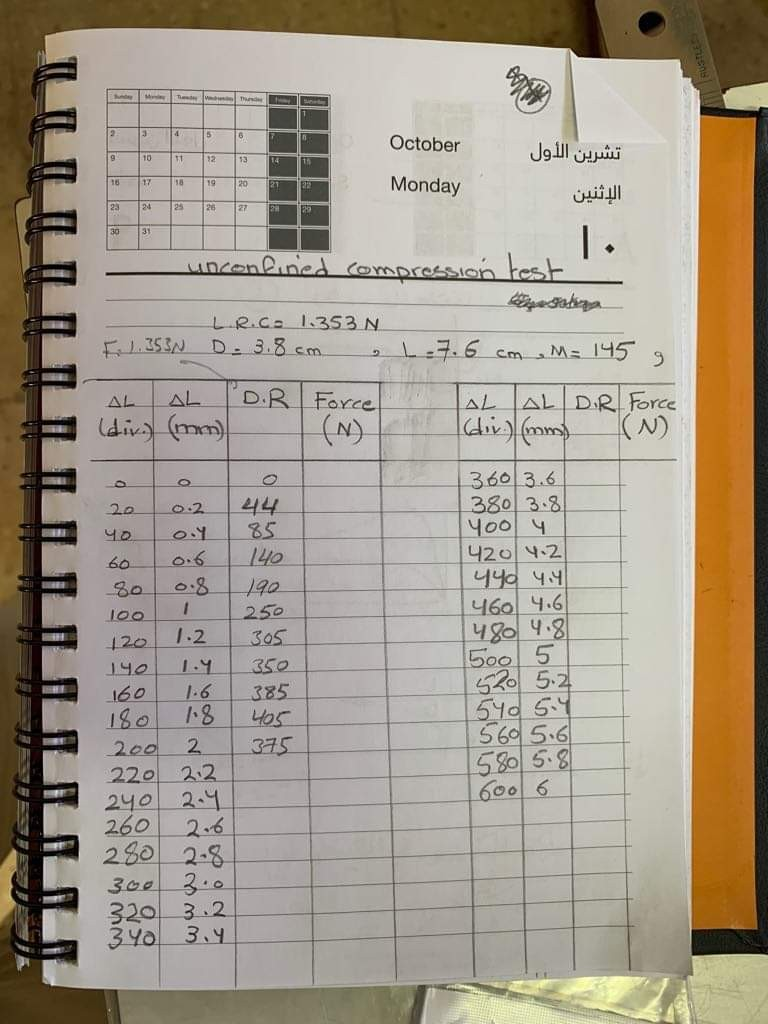 Sunday Monday Tuesday Wednesday Thursday Friday Saturday
1
2 3 4 5 6 7 8
9 10 11 12 13 14 15
16 17 18 19 20 21 22
23 24 25 26 27 28 29
30 31
October تشرين الأول
Monday الإثنين
١٠
unconfined compression test
L.R.C= 1.353 N
F: 1.353N D = 3.8 cm , L = 7.6 cm , M= 145 g
ΔL (div.) ΔL (mm) D.R Force (N) ΔL (div.) ΔL (mm) D.R Force (N)
0 0 0 360 3.6
20 0.2 44 380 3.8
40 0.4 85 400 4
60 0.6 140 420 4.2
80 0.8 190 440 4.4
100 1 250 460 4.6
120 1.2 305 480 4.8
140 1.4 350 500 5
160 1.6 385 520 5.2
180 1.8 405 540 5.4
200 2 375 560 5.6
220 2.2 580 5.8
240 2.4 600 6
260 2.6
280 2.8
300 3.0
320 3.2
340 3.4